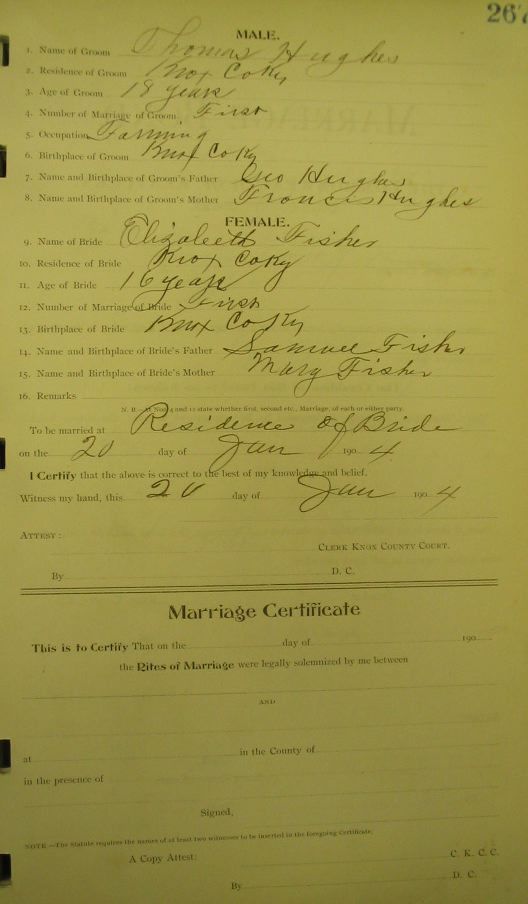 267
MALE.
1. Name of Groom Thomas Hughes
2. Residence of Groom Knox Co Ky
3. Age of Groom 18 years
4. Number of Marriage of Groom First
5. Occupation Farming
6. Birthplace of Groom Knox Co Ky
7. Name and Birthplace of Groom's Father Geo Hughes
8. Name and Birthplace of Groom's Mother Francis Hughes
FEMALE.
9. Name of Bride Elizabeth Fisher
10. Residence of Bride Knox Co Ky
11. Age of Bride 16 years
12. Number of Marriage of Bride First
13. Birthplace of Bride Knox Co Ky
14. Name and Birthplace of Bride's Father Samuel Fisher
15. Name and Birthplace of Bride's Mother Mary Fisher
16. Remarks
N. B.—At Nos. 4 and 12 state whether first, second etc., Marriage, of each or either party.
To be married at Residence of Bride
on the 20 day of Jan 190 4
I Certify that the above is correct to the best of my knowledge and belief.
Witness my hand, this 20 day of Jan 190 4
ATTEST:
CLERK KNOX COUNTY COURT.
By D. C.
Marriage Certificate
This is to Certify That on the day of 190
the Rites of Marriage were legally solemnized by me between
AND
at in the County of
in the presence of
Signed,
NOTE.—The Statute requires the names of at least two witnesses to be inserted in the foregoing Certificate.
A Copy Attest: C. K. C. C.
By D. C.